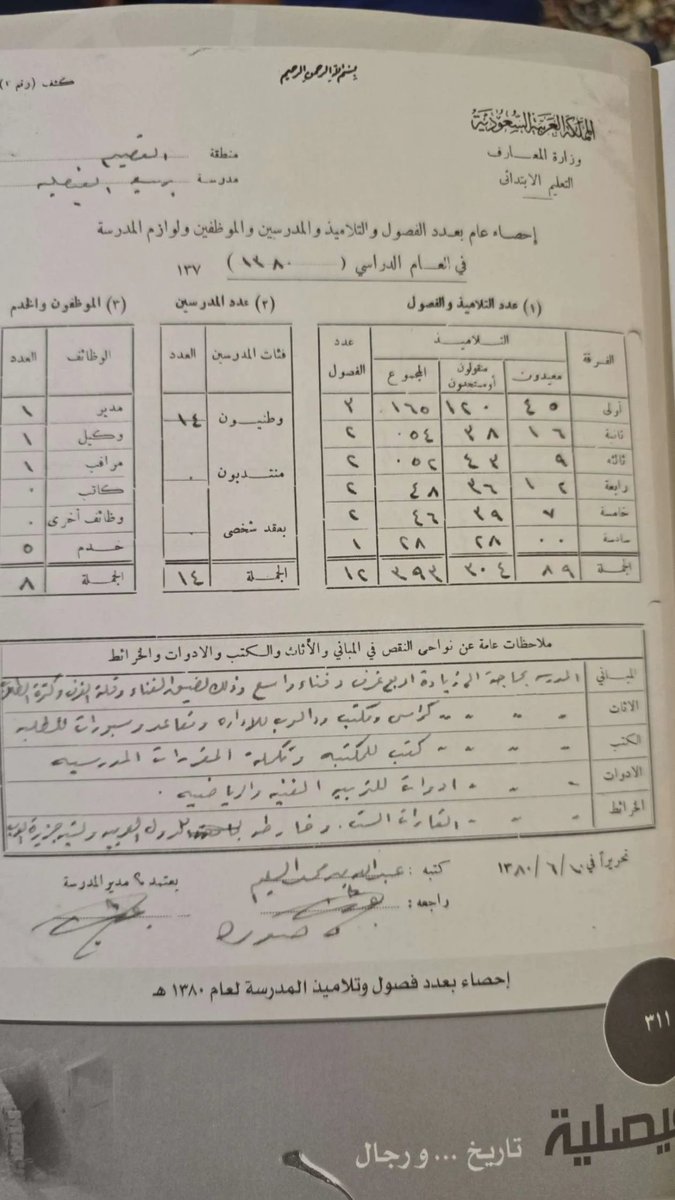 بسم الله الرحمن الرحيم
كشف (رقم ٢)
المملكة العربية السعودية
وزارة المعارف
التعليم الابتدائى
منطقة القصيم
مدرسة الفيصلية
احصاء عام بعدد الفصول والتلاميذ والمدرسين والموظفين ولوازم المدرسة
في العام الدراسي (١٣٨٠) ١٣٧
(١) عدد التلاميذ والفصول
الفرقة التلاميذ عدد الفصول
معيدون منقولون أو مستجدون المجموع
أولى ٤٥ ١٢٠ ١٦٥ ٣
ثانية ١٦ ٣٨ ٠٥٤ ٢
ثالثه ٩ ٤٣ ٠٥٢ ٢
رابعة ١٢ ٣٦ ٤٨ ٢
خامسة ٧ ٣٩ ٤٦ ٢
سادسة ٠٠ ٢٨ ٢٨ ١
الجملة ٨٩ ٣٠٤ ٣٩٣ ١٢
(٢) عدد المدرسين
فئات المدرسين العدد
وطنيون ١٤
منتدبون ٠
بعقد شخصى ٠
الجملة ١٤
(٣) الموظفون والخدم
الوظائف العدد
مدير ١
وكيل ١
مراقب ١
كاتب ٠
وظائف أخرى ٠
خدم ٥
الجملة ٨
ملاحظات عامة عن نواحى النقص في المباني والأثاث والكتب والادوات والخرائط
المباني المدرسه بحاجة الى زيادة اربع غرف وفناء واسع وذلك لضيق الفناء وقلة الغرف وكثرة الطلبة
الاثاث " " " كراسى ومكتب ودالوب للاداره ومقاعد وسبورات للطلبه
الكتب " " " كتب للمكتبه وتكملة المقررات المدرسيه
الادوات " " " ادوات للتربيه الفنيه والرياضيه .
الخرائط " " " القارات الست . وخارطه للدول العربيه ولشبه جزيرة العرب
تحريراً في ١٣٨٠/٦/
كتبه : عبدالله محمد السليم
راجعه :
صوره
يعتمد ، مدير المدرسة
احصاء بعدد فصول وتلاميذ المدرسة لعام ١٣٨٠ هـ
٣١١
يصلية
تاريخ ... ورجال